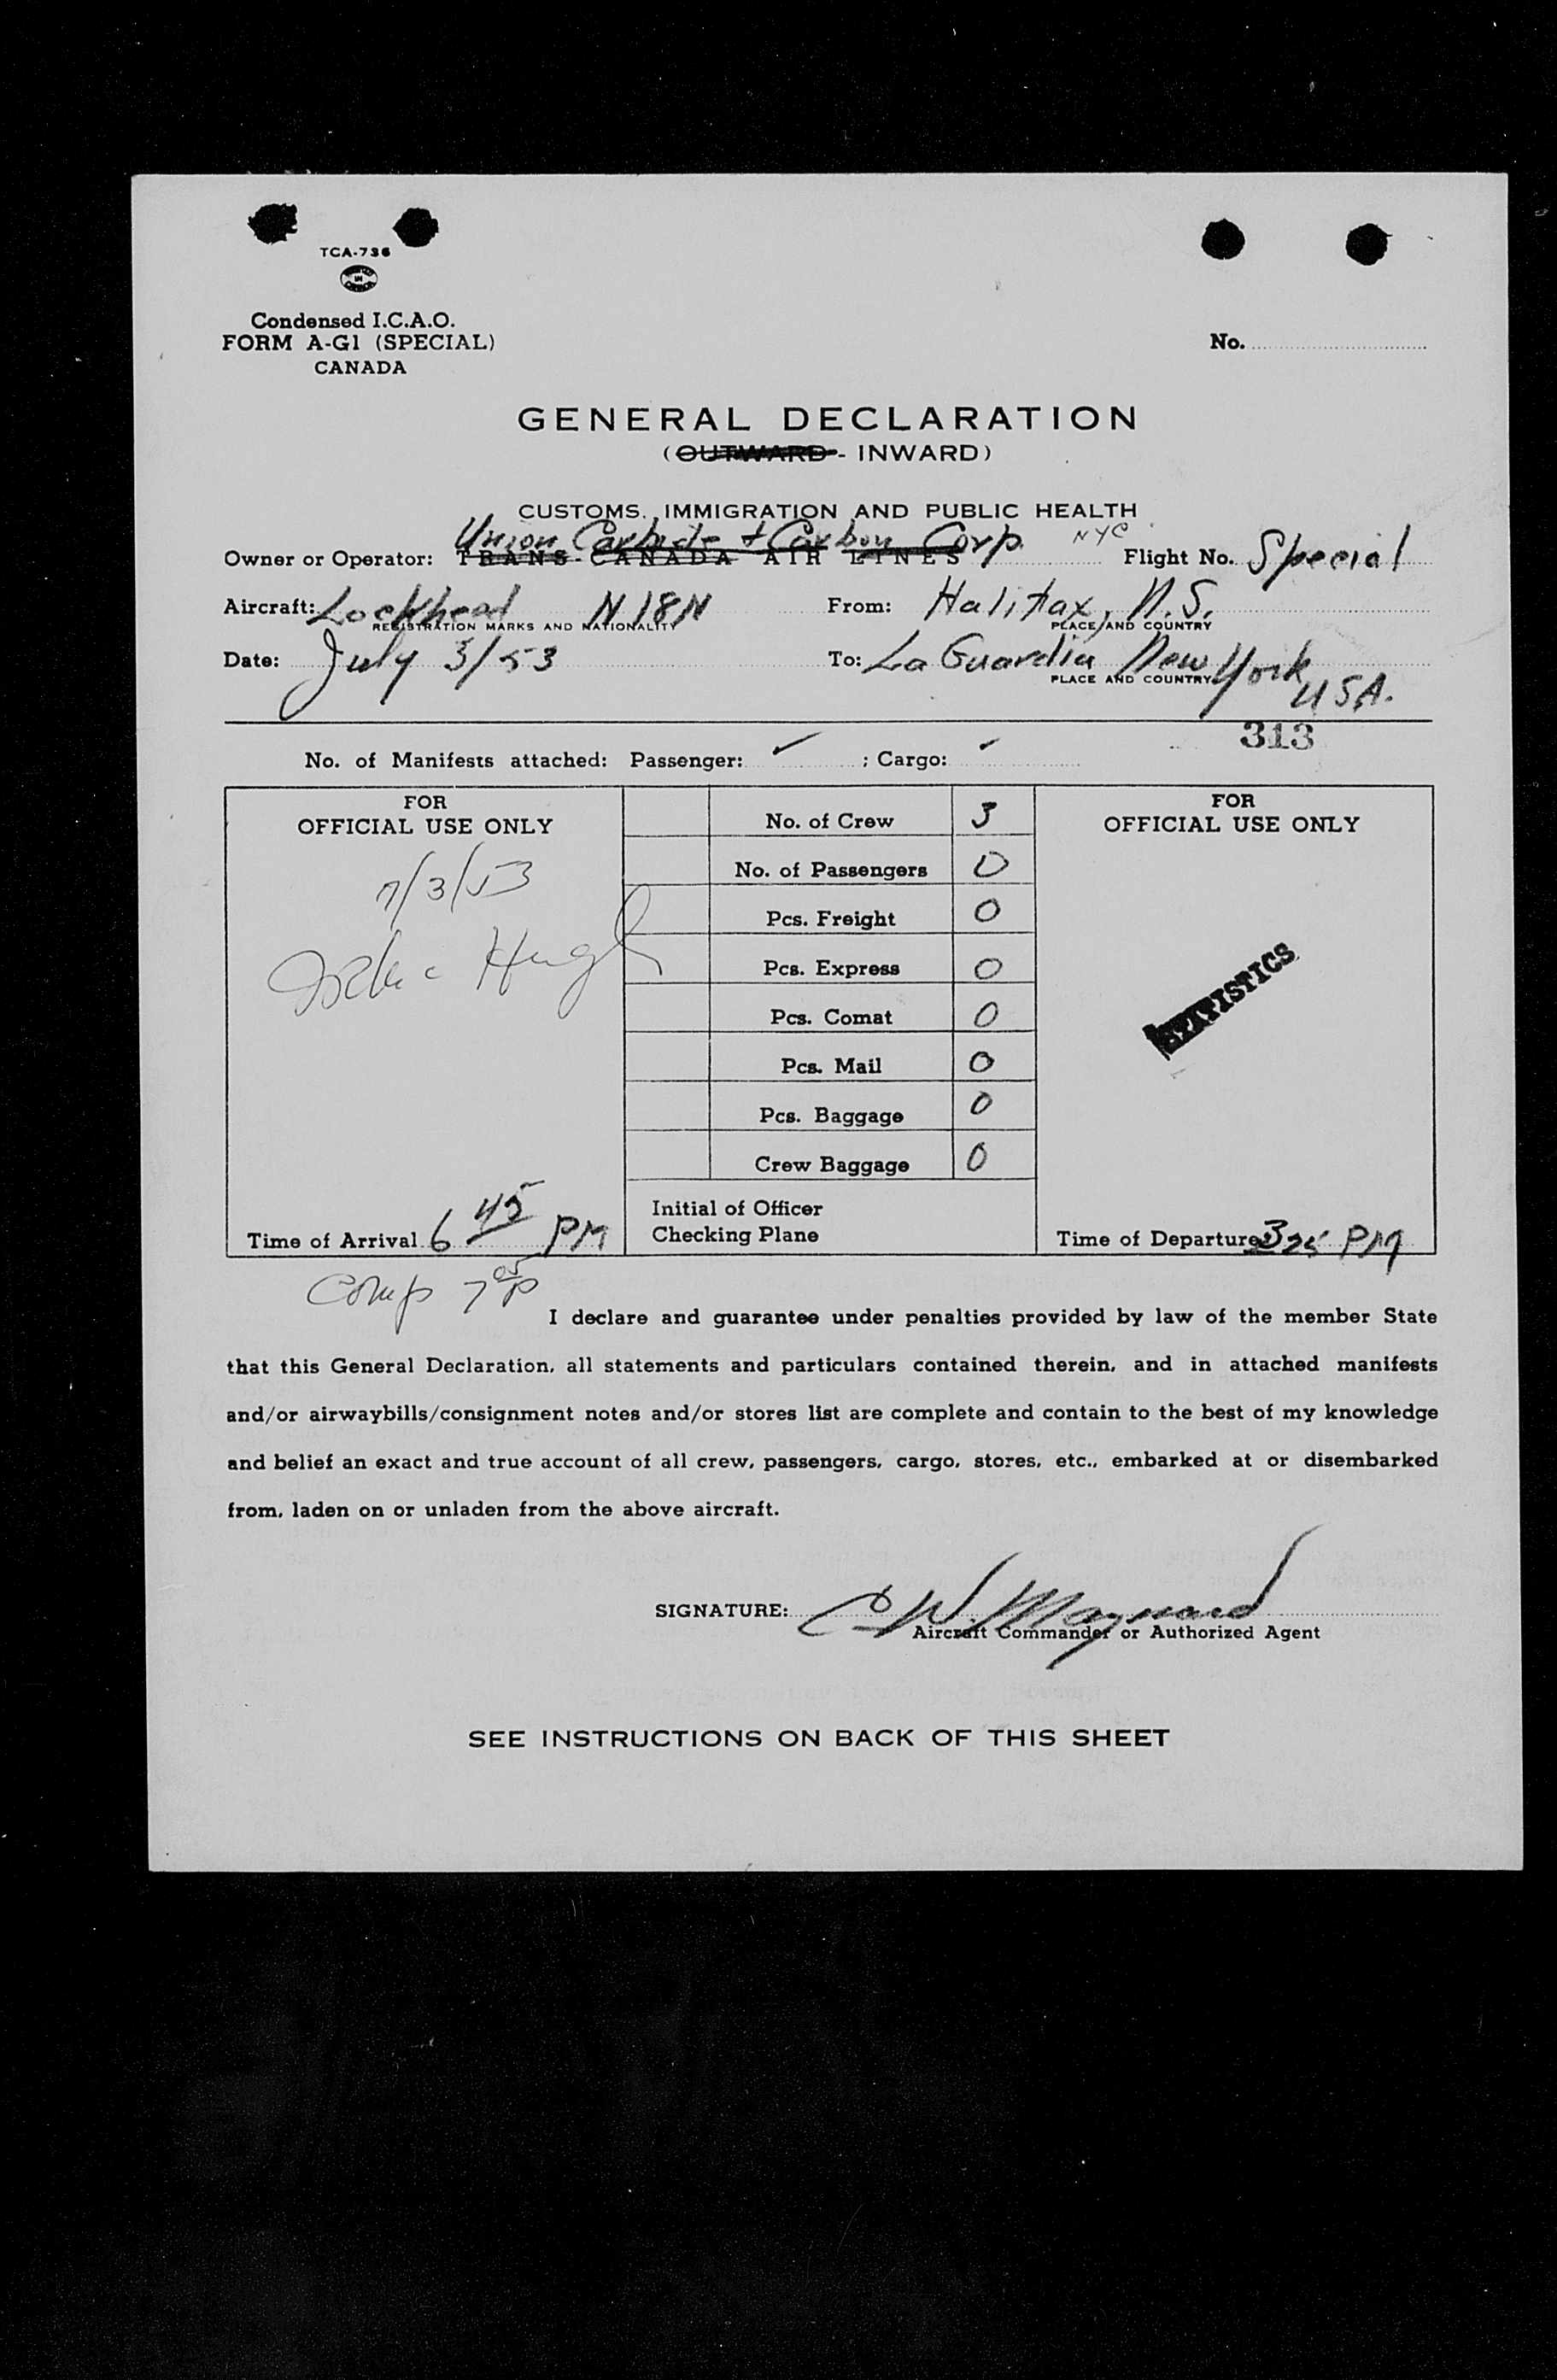 TCA-736
Condensed I.C.A.O.
FORM A-G1 (SPECIAL)
CANADA
No.
GENERAL DECLARATION
(OUTWARD - INWARD)
CUSTOMS, IMMIGRATION AND PUBLIC HEALTH
Union Carbide + Carbon Corp. NYC
Owner or Operator: TRANS-CANADA AIR LINES Flight No. Special
Aircraft: Lockhead N18N From: Halifax, N.S.
REGISTRATION MARKS AND NATIONALITY PLACE AND COUNTRY
Date: July 3/53 To: La Guardia New York USA.
PLACE AND COUNTRY
313
No. of Manifests attached: Passenger: ✓ ; Cargo: ✓
FOR
OFFICIAL USE ONLY
7/3/53
Time of Arrival 6 45 PM
Comp 7 05 P
No. of Crew 3
No. of Passengers 0
Pcs. Freight 0
Pcs. Express 0
Pcs. Comat 0
Pcs. Mail 0
Pcs. Baggage 0
Crew Baggage 0
Initial of Officer
Checking Plane
FOR
OFFICIAL USE ONLY
STATISTICS
Time of Departure 3 25 PM
I declare and guarantee under penalties provided by law of the member State
that this General Declaration, all statements and particulars contained therein, and in attached manifests
and/or airwaybills/consignment notes and/or stores list are complete and contain to the best of my knowledge
and belief an exact and true account of all crew, passengers, cargo, stores, etc., embarked at or disembarked
from, laden on or unladen from the above aircraft.
SIGNATURE: C W Maynard
Aircraft Commander or Authorized Agent
SEE INSTRUCTIONS ON BACK OF THIS SHEET